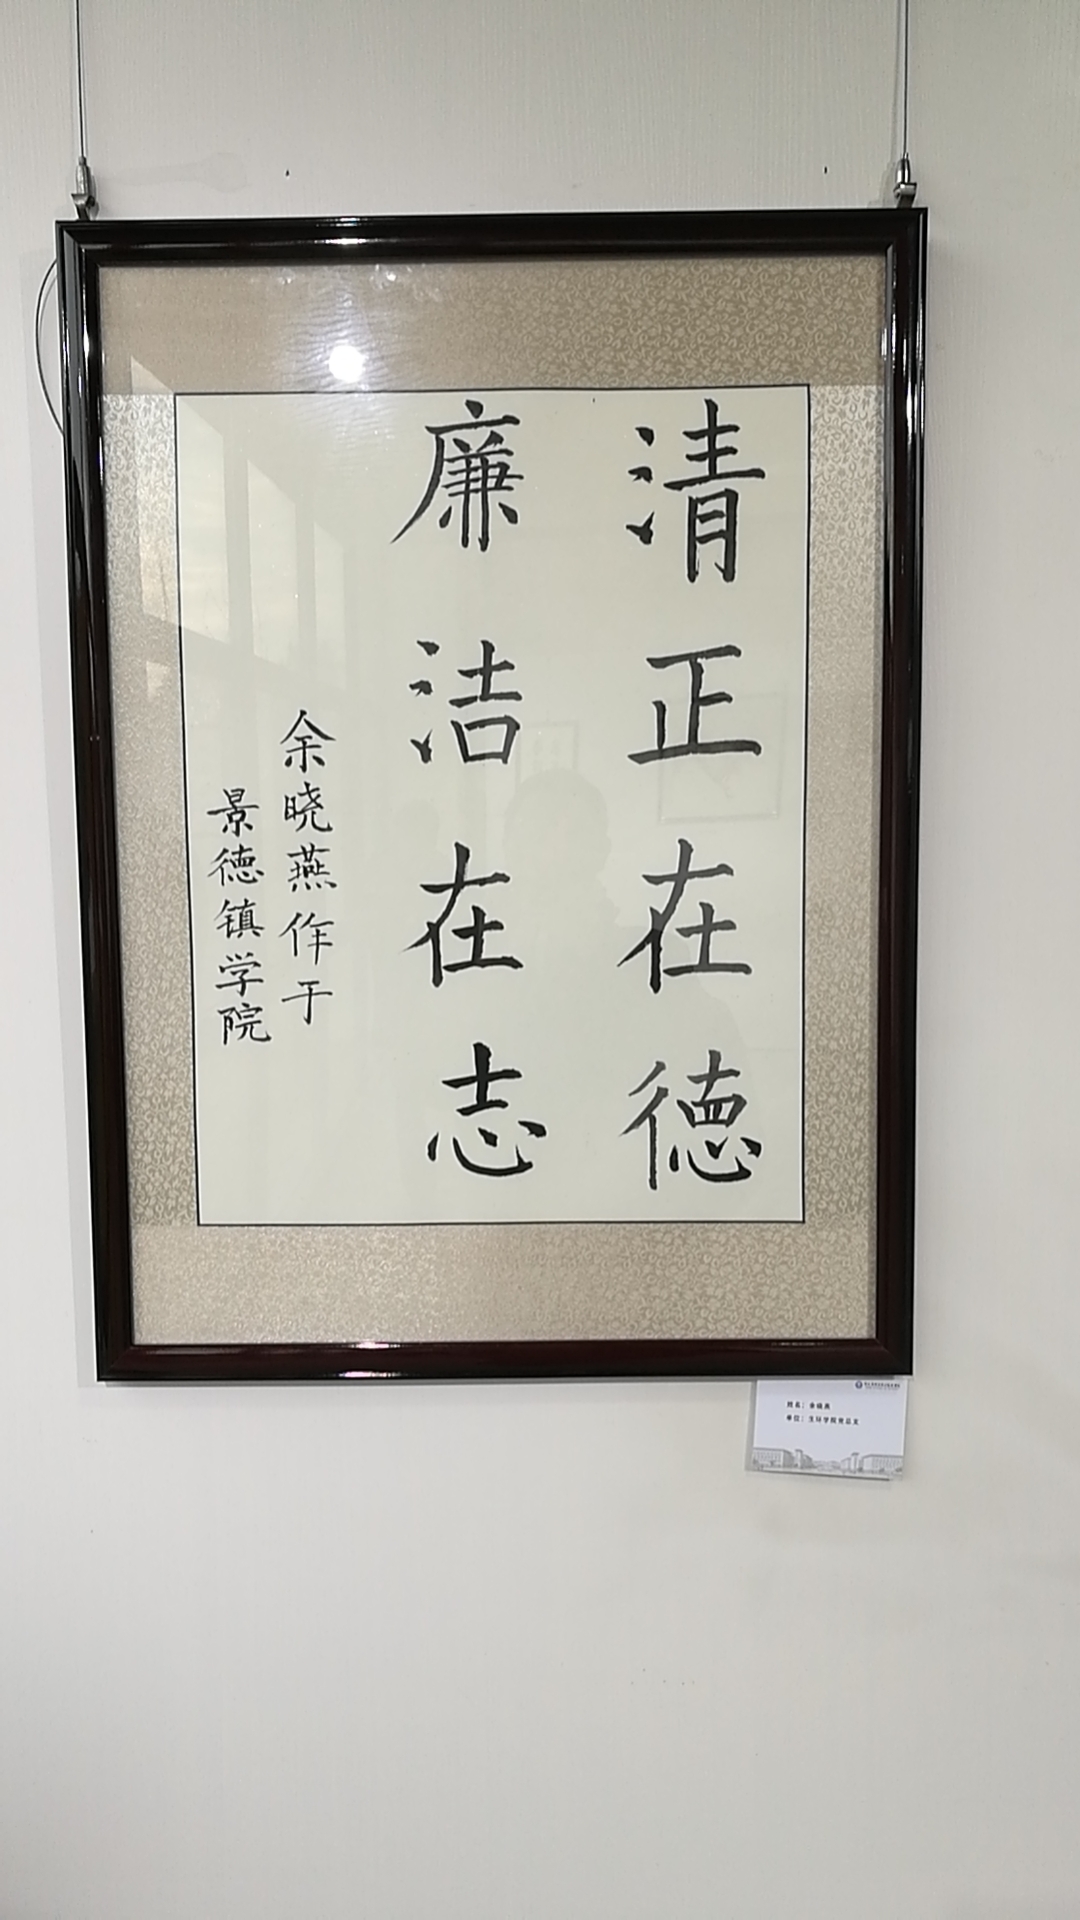 清正在德
廉洁在志
余晓燕作于
景德镇学院
姓名：余晓燕
单位：生环学院党总支